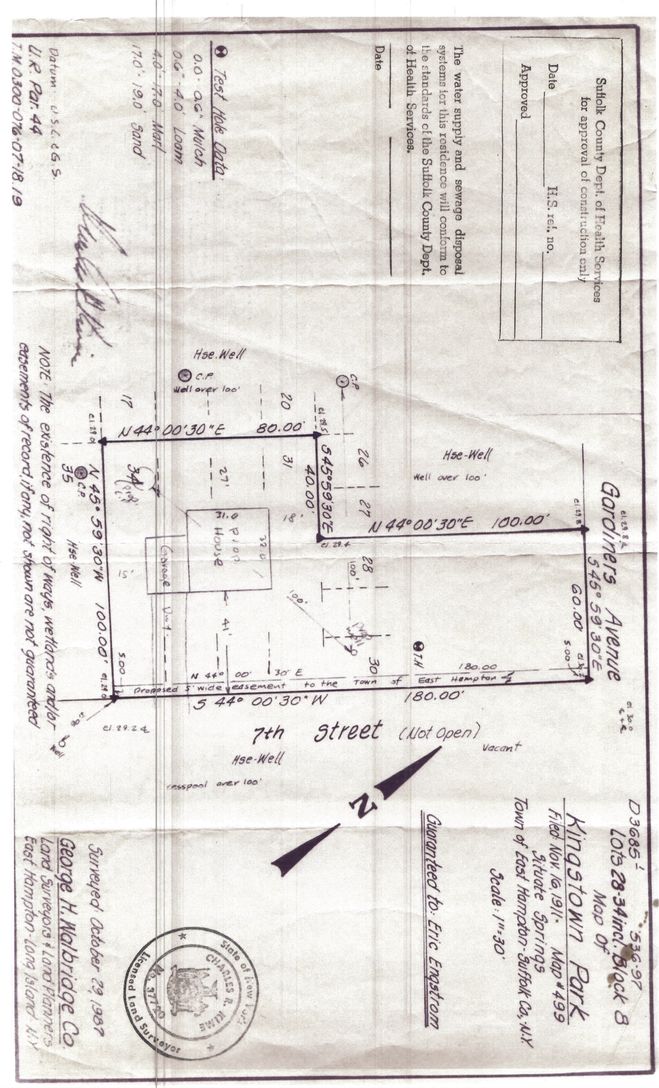 Suffolk County Dept. of Health Services
for approval of construction only
Date H.S. ref. no.
Approved
The water supply and sewage disposal
systems for this residence will conform to
the standards of the Suffolk County Dept.
of Health Services.
Date
Test Hole Data:
0.0'-0.6' Mulch
0.6'-4.0' Loam
4.0'-7.0' Marl
17.0'-19.0' Sand
Datum U.S.C.&G.S.
U.R. Par. 44
T.M. 0300-076-07-18,19
Gardiners Avenue
S 45° 59' 30" E
60.00'
5.00'
Hse-Well
Well over 100'
N 44° 00' 30" E 100.00'
C.P.
26
27
28
30
100'
100'
T.H.
S 45° 59' 30" E
40.00'
el. 29.4
Hse-Well
C.P.
Well over 100'
20
31
18'
N 44° 00' 30" E 80.00'
17
27'
31.0
Prop
House
Garage
41'
34
15'
35
C.P.
Hse Well
N 45° 59' 30" W 100.00'
5.00
N 44° 00' 30" E
180.00
Proposed 5' wide easement to the Town of East Hampton
S 44° 00' 30" W 180.00'
el. 29.2
Well
7th Street (Not Open)
Vacant
Hse-Well
cesspool over 100'
N
NOTE: The existence of right of ways, wetlands and/or
easements of record if any, not shown are not guaranteed
D3685
536-97
Lots 28-34 incl. Block 8
Map Of
Kingstown Park
Filed Nov. 16, 1911- Map #499
Situate Springs
Town of East Hampton-Suffolk Co., N.Y.
Scale: 1"=30'
Guaranteed to: Eric Engstrom
Surveyed October 29, 1987
George H. Walbridge Co.
Land Surveyors & Land Planners
East Hampton-Long Island, N.Y.
State of New York
CHARLES R. KIME
No. 37720
Licensed Land Surveyor